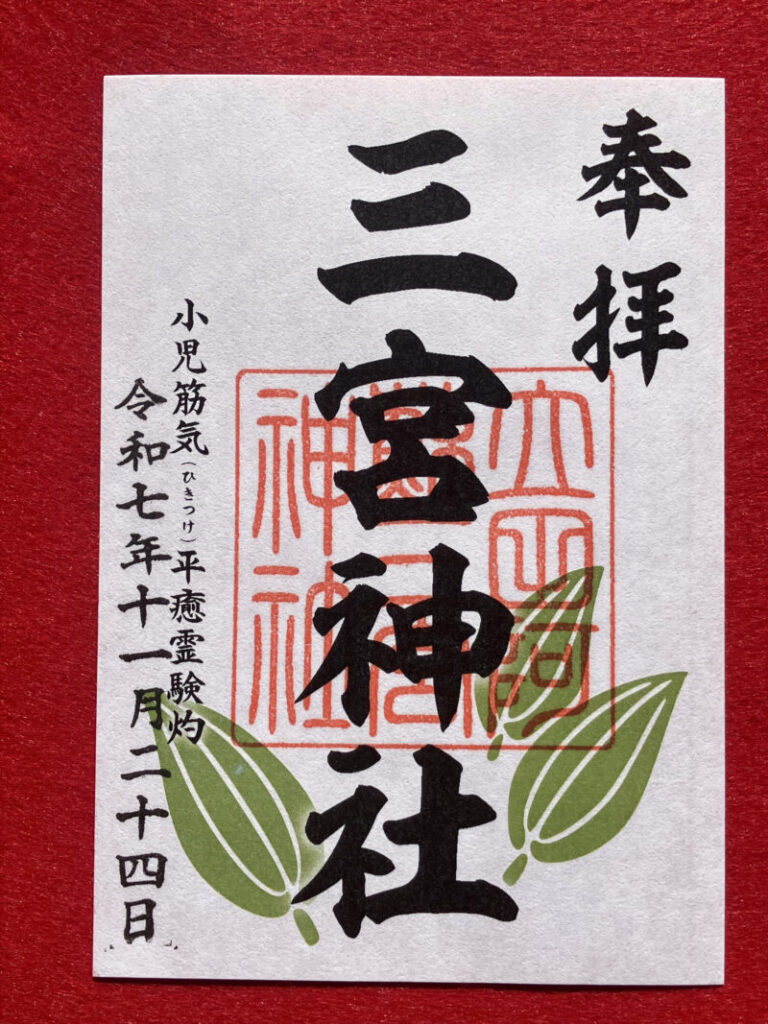 奉拝
三宮神社
小児筋気(ひきつけ)平癒霊験灼
令和七年十一月二十四日